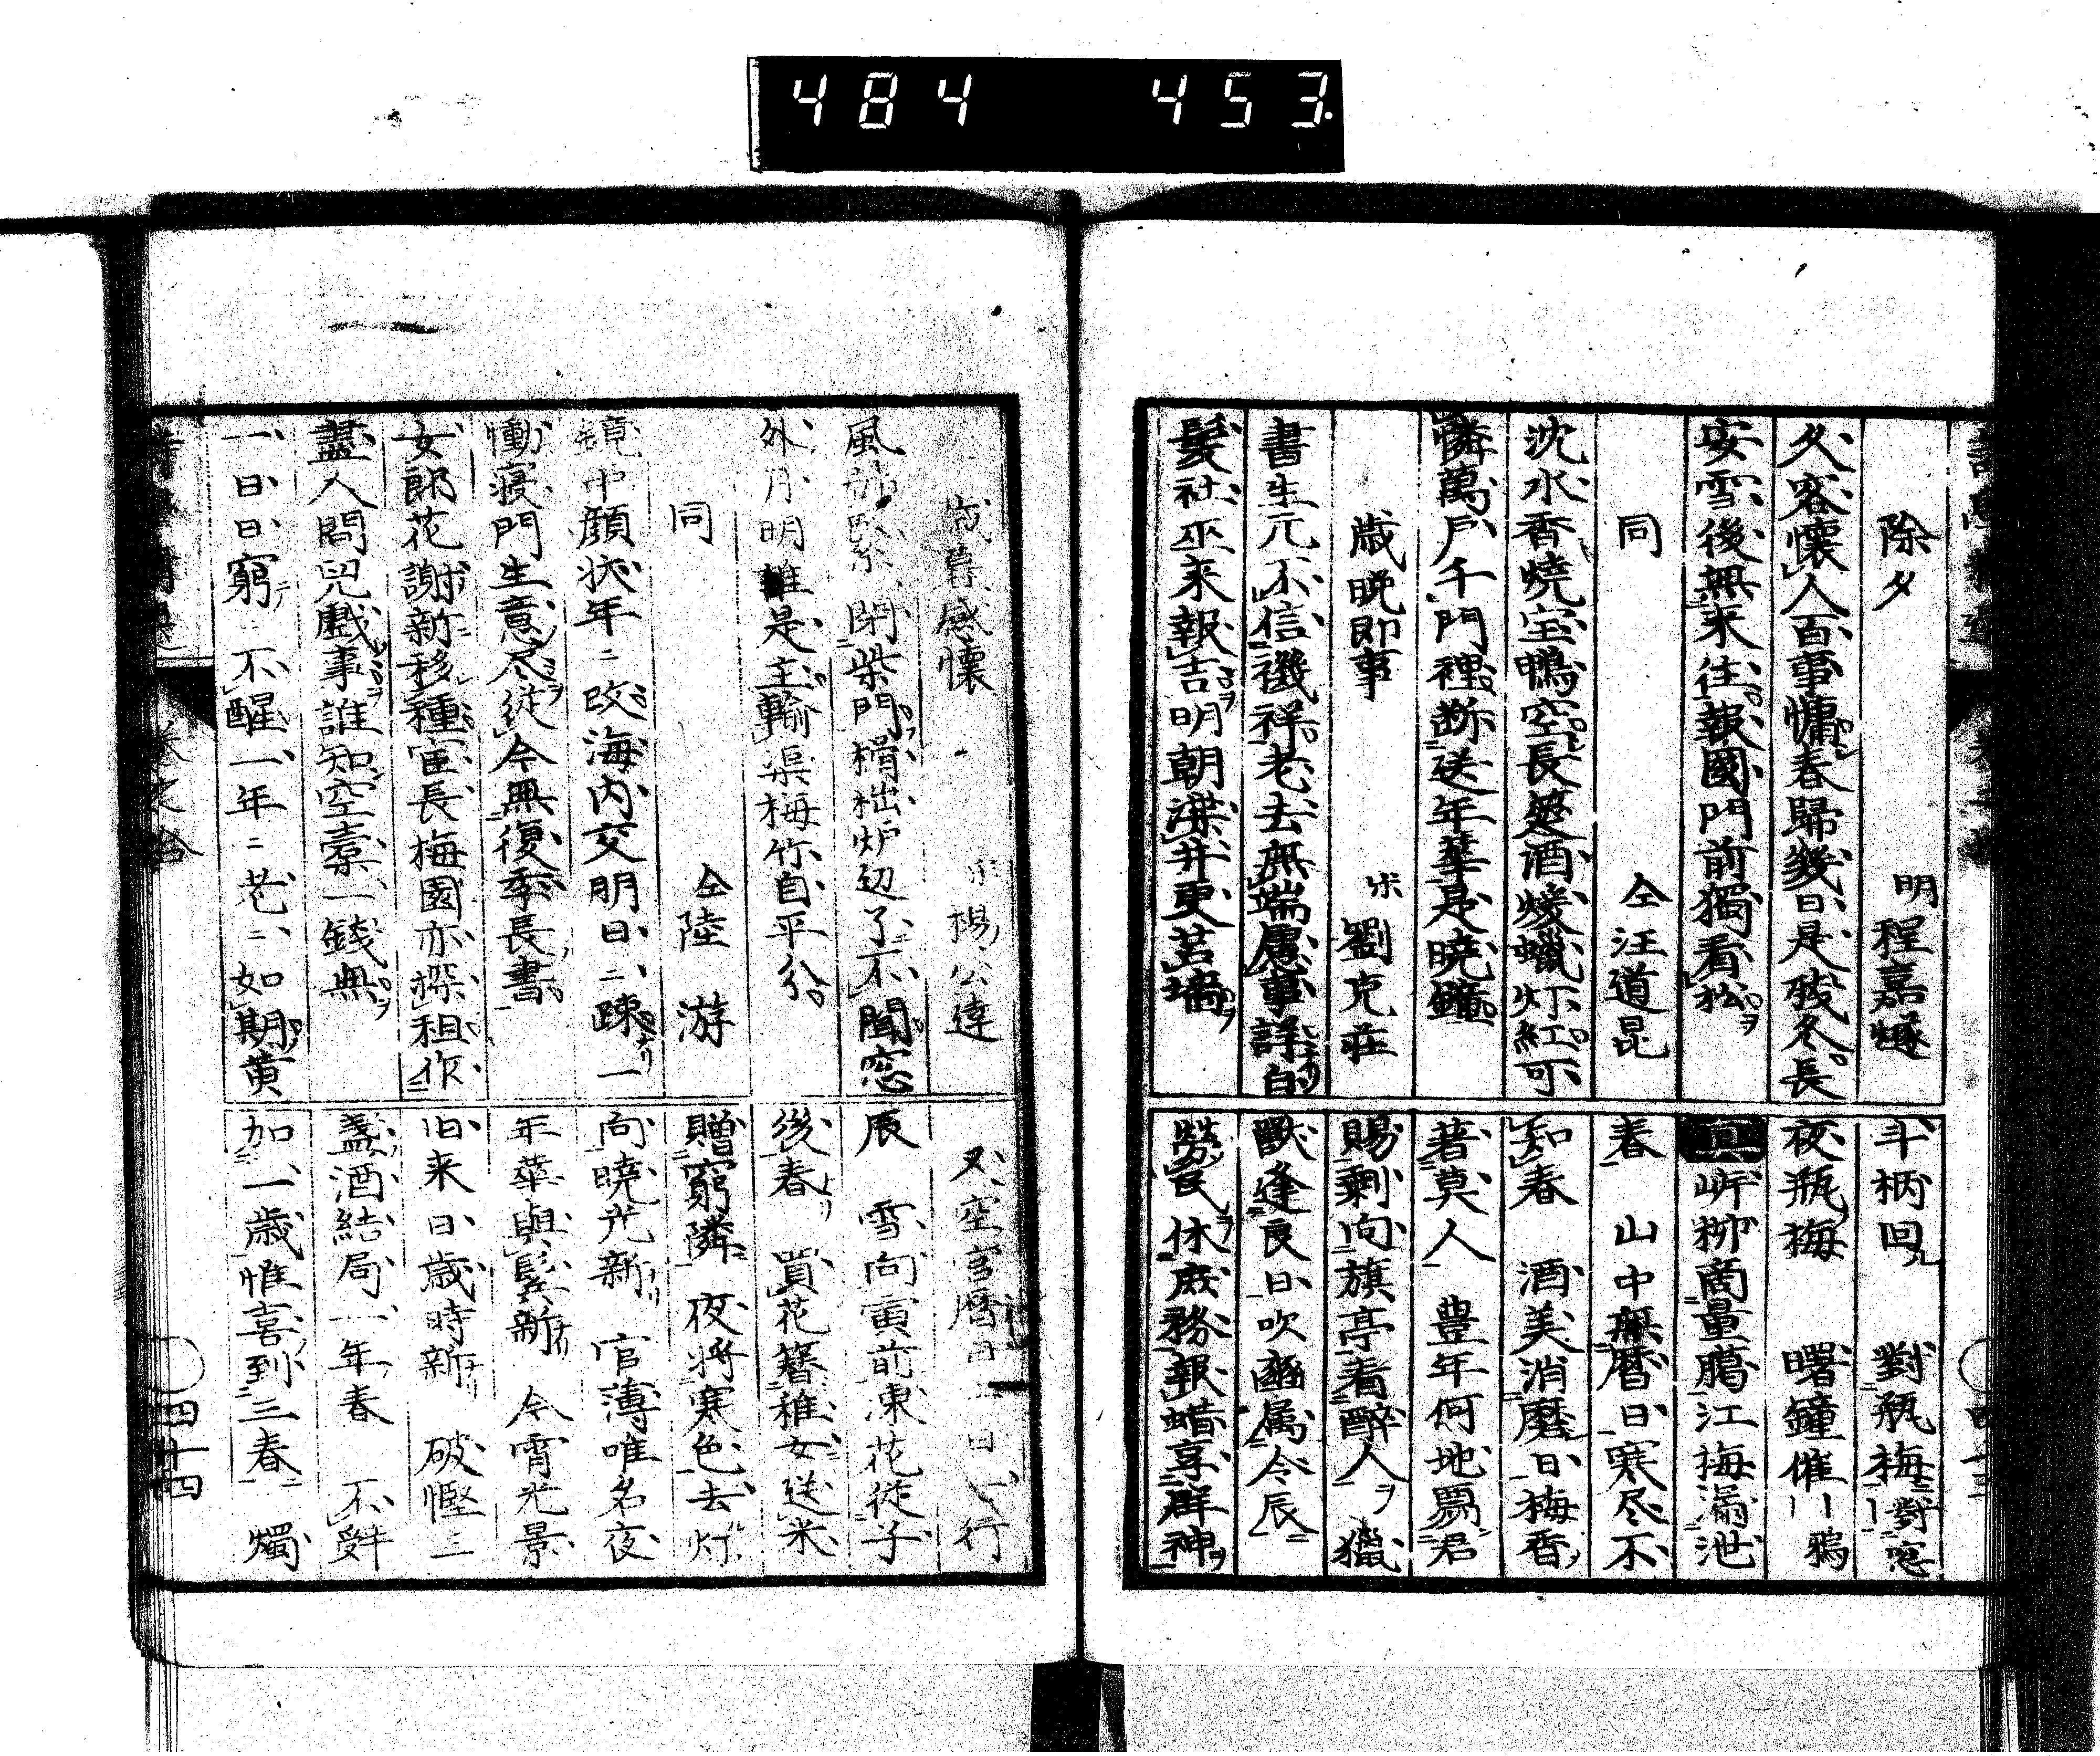 484 453
除夕 明程嘉燧
久客懷人百事慵春歸幾日是殘冬長
安雪後無来往報國門前獨看松
同 仝汪道昆
沈水香燒宝鴨空長筵酒煖蠟灯紅可
憐萬戸千門裡断送年華是暁鐘
歳晩即事 宋劉克荘
書生元不信禨祥老去無端慮事詳白
髪社巫来報吉明朝渫井更苫墻
斗柄回 對瓶梅對窓
夜瓶梅 曙鐘催 鴉
岸柳商量臈江梅漏泄
春 山中無暦日寒尽不
知春 酒美消磨日梅香
著莫人 豊年何地爲君
賜剰向旗亭看醉人 獵
獸逢良日吹豳属令辰
勞民休庶務報蜡享群神
歳暮感懐 宋楊公遠
風 緊閉柴門榾柮炉辺了不聞窓
外月明誰是主輸渠梅竹自平分
同 仝陸游
鏡中顔状年二改海内交朋日二踈一
慟寝門生意尽従今無復季長書
女郎花謝新移種宦長梅園亦探租作
盡人間兒戲事誰知空槖一錢無
一日日窮二不醒一年二茫二如期黄
又空 暦日 日 行
辰 雪向寅前凍花従子
後春 買花簪稚女送米
贈窮隣 夜将寒色去灯
向暁光新 官薄唯名夜
年華與鬂新 今宵光景
旧来日歳時新 破慳三
盞酒結局一年春 不辤
加一歳惟喜到三春 燭
四十四